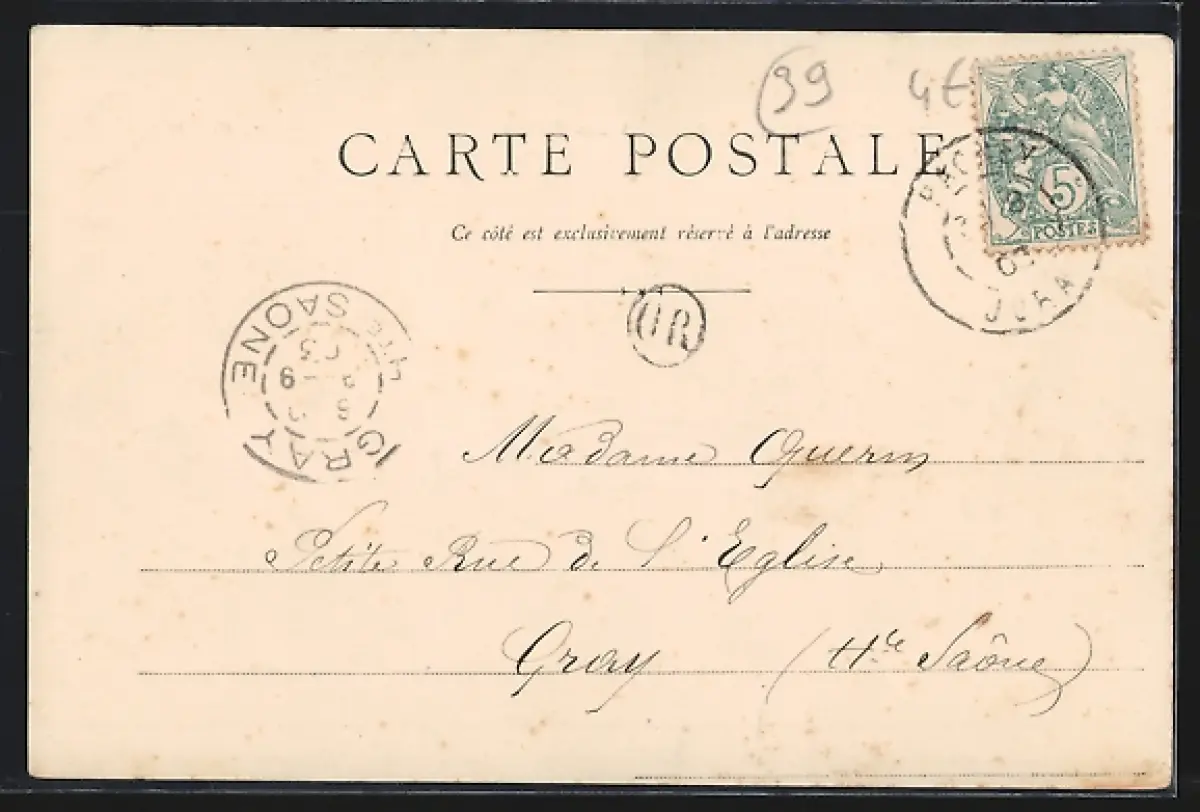 39 4€
CARTE POSTALE
Ce côté est exclusivement réservé à l'adresse
5c
POSTES
JURA
OR
GRAY
HTE SAÔNE
9
03
Madame Guerin
Petite Rue de l'Eglise
Gray (Hte Saône)